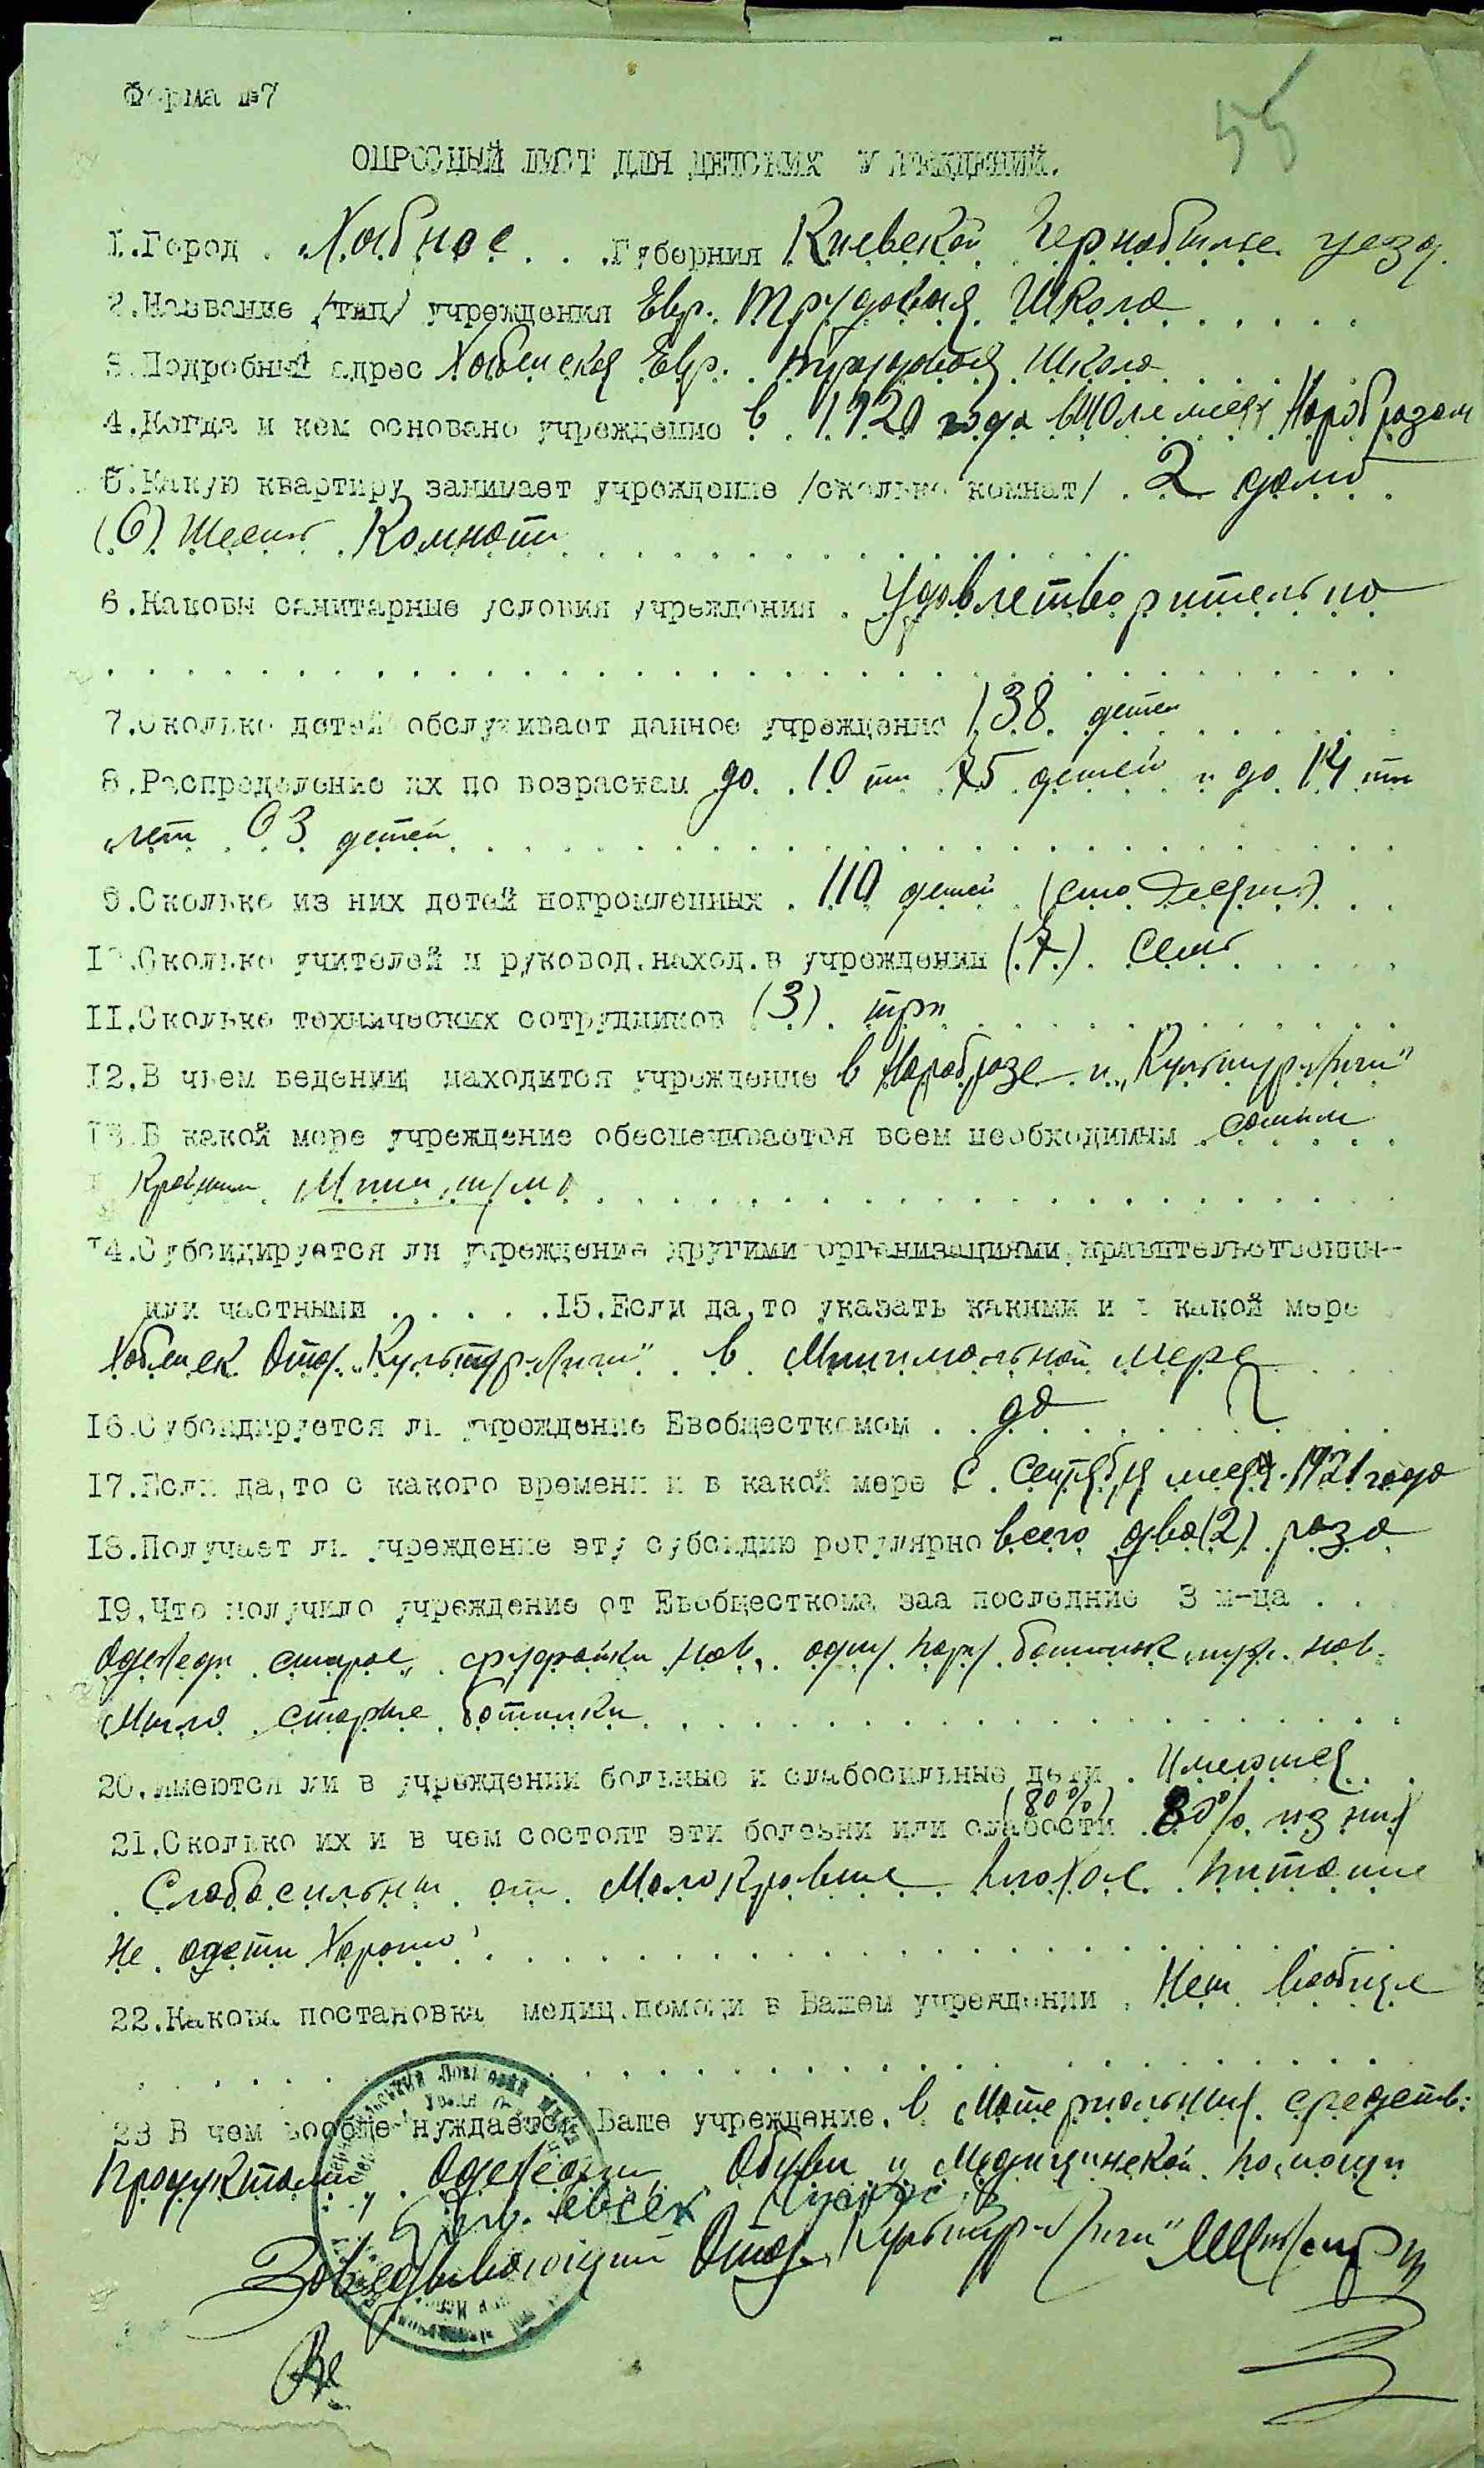 Форма №7
55
ОПРОСНЫЙ ЛИСТ ДЛЯ ДЕТСКИХ УЧРЕЖДЕНИЙ.
1.Город . Хабное . . .Губерния Киевской Чернобыльс. уезд.
2.Название /тип/ учреждения Евр. Трудовая Школа
3.Подробный адрес Хабенская Евр. трудовая школа
4.Когда и кем основано учреждение в 1920 года в Июле месяц Наробразом
5.Какую квартиру занимает учреждение /сколько комнат/ . 2 дома
(6) шесть Комнат
6.Каковы санитарные условия учреждения . Удовлетворительно
7.Сколько детей обслуживает данное учреждение 138 детей
8.Распределение их по возрастам до 10 ти 75 детей и до 14 ти
лет 63 детей
9.Сколько из них детей погромленных . 110 детей (сто десять)
10.Сколько учителей и руковод.наход.в учреждении (7) семь
11.Сколько технических сотрудников (3) три
12.В чьем ведении находится учреждение в Наробразе и "Культур-Лиги"
13.В какой мере учреждение обеспечивается всем необходимым самым
Крайним Минимумом
14.Субсидируется ли учреждение другими организациями правительственн-
или частными . . . . .15.Если да,то указать какими и в какой мере
Хабенск. Отд. "Культур-Лиги" в Минимальной мере
16.Субсидируется ли учреждение Евобщесткомом . . да
17.Если да,то с какого времени и в какой мере С Сентября месяц 1921 года
18.Получает ли учреждение эту субсидию регулярно всего два (2) раза
19.Что получило учреждение от Евобщесткома заа последние 3 м-ца . .
Одежды старое, фуфайки нов. одну пару ботинок нов.
Мыло старые ботинки
20.Имеются ли в учреждении больные и слабосильные дети . Имеются
(80%)
21.Сколько их и в чем состоят эти болезни или слабости 80% из них
Слабосильны от Малокровие плохое питание
Не одеты Хорошо
22.Какова постановка медиц.помощи в Вашем учреждении . Нет вообще
23 В чем вообще нуждается Ваше учреждение. в Материальных средств:
Продуктами, Одежды, Обуви и Медицинской помощи
Заведывающий Отд. "Культур-Лиги"